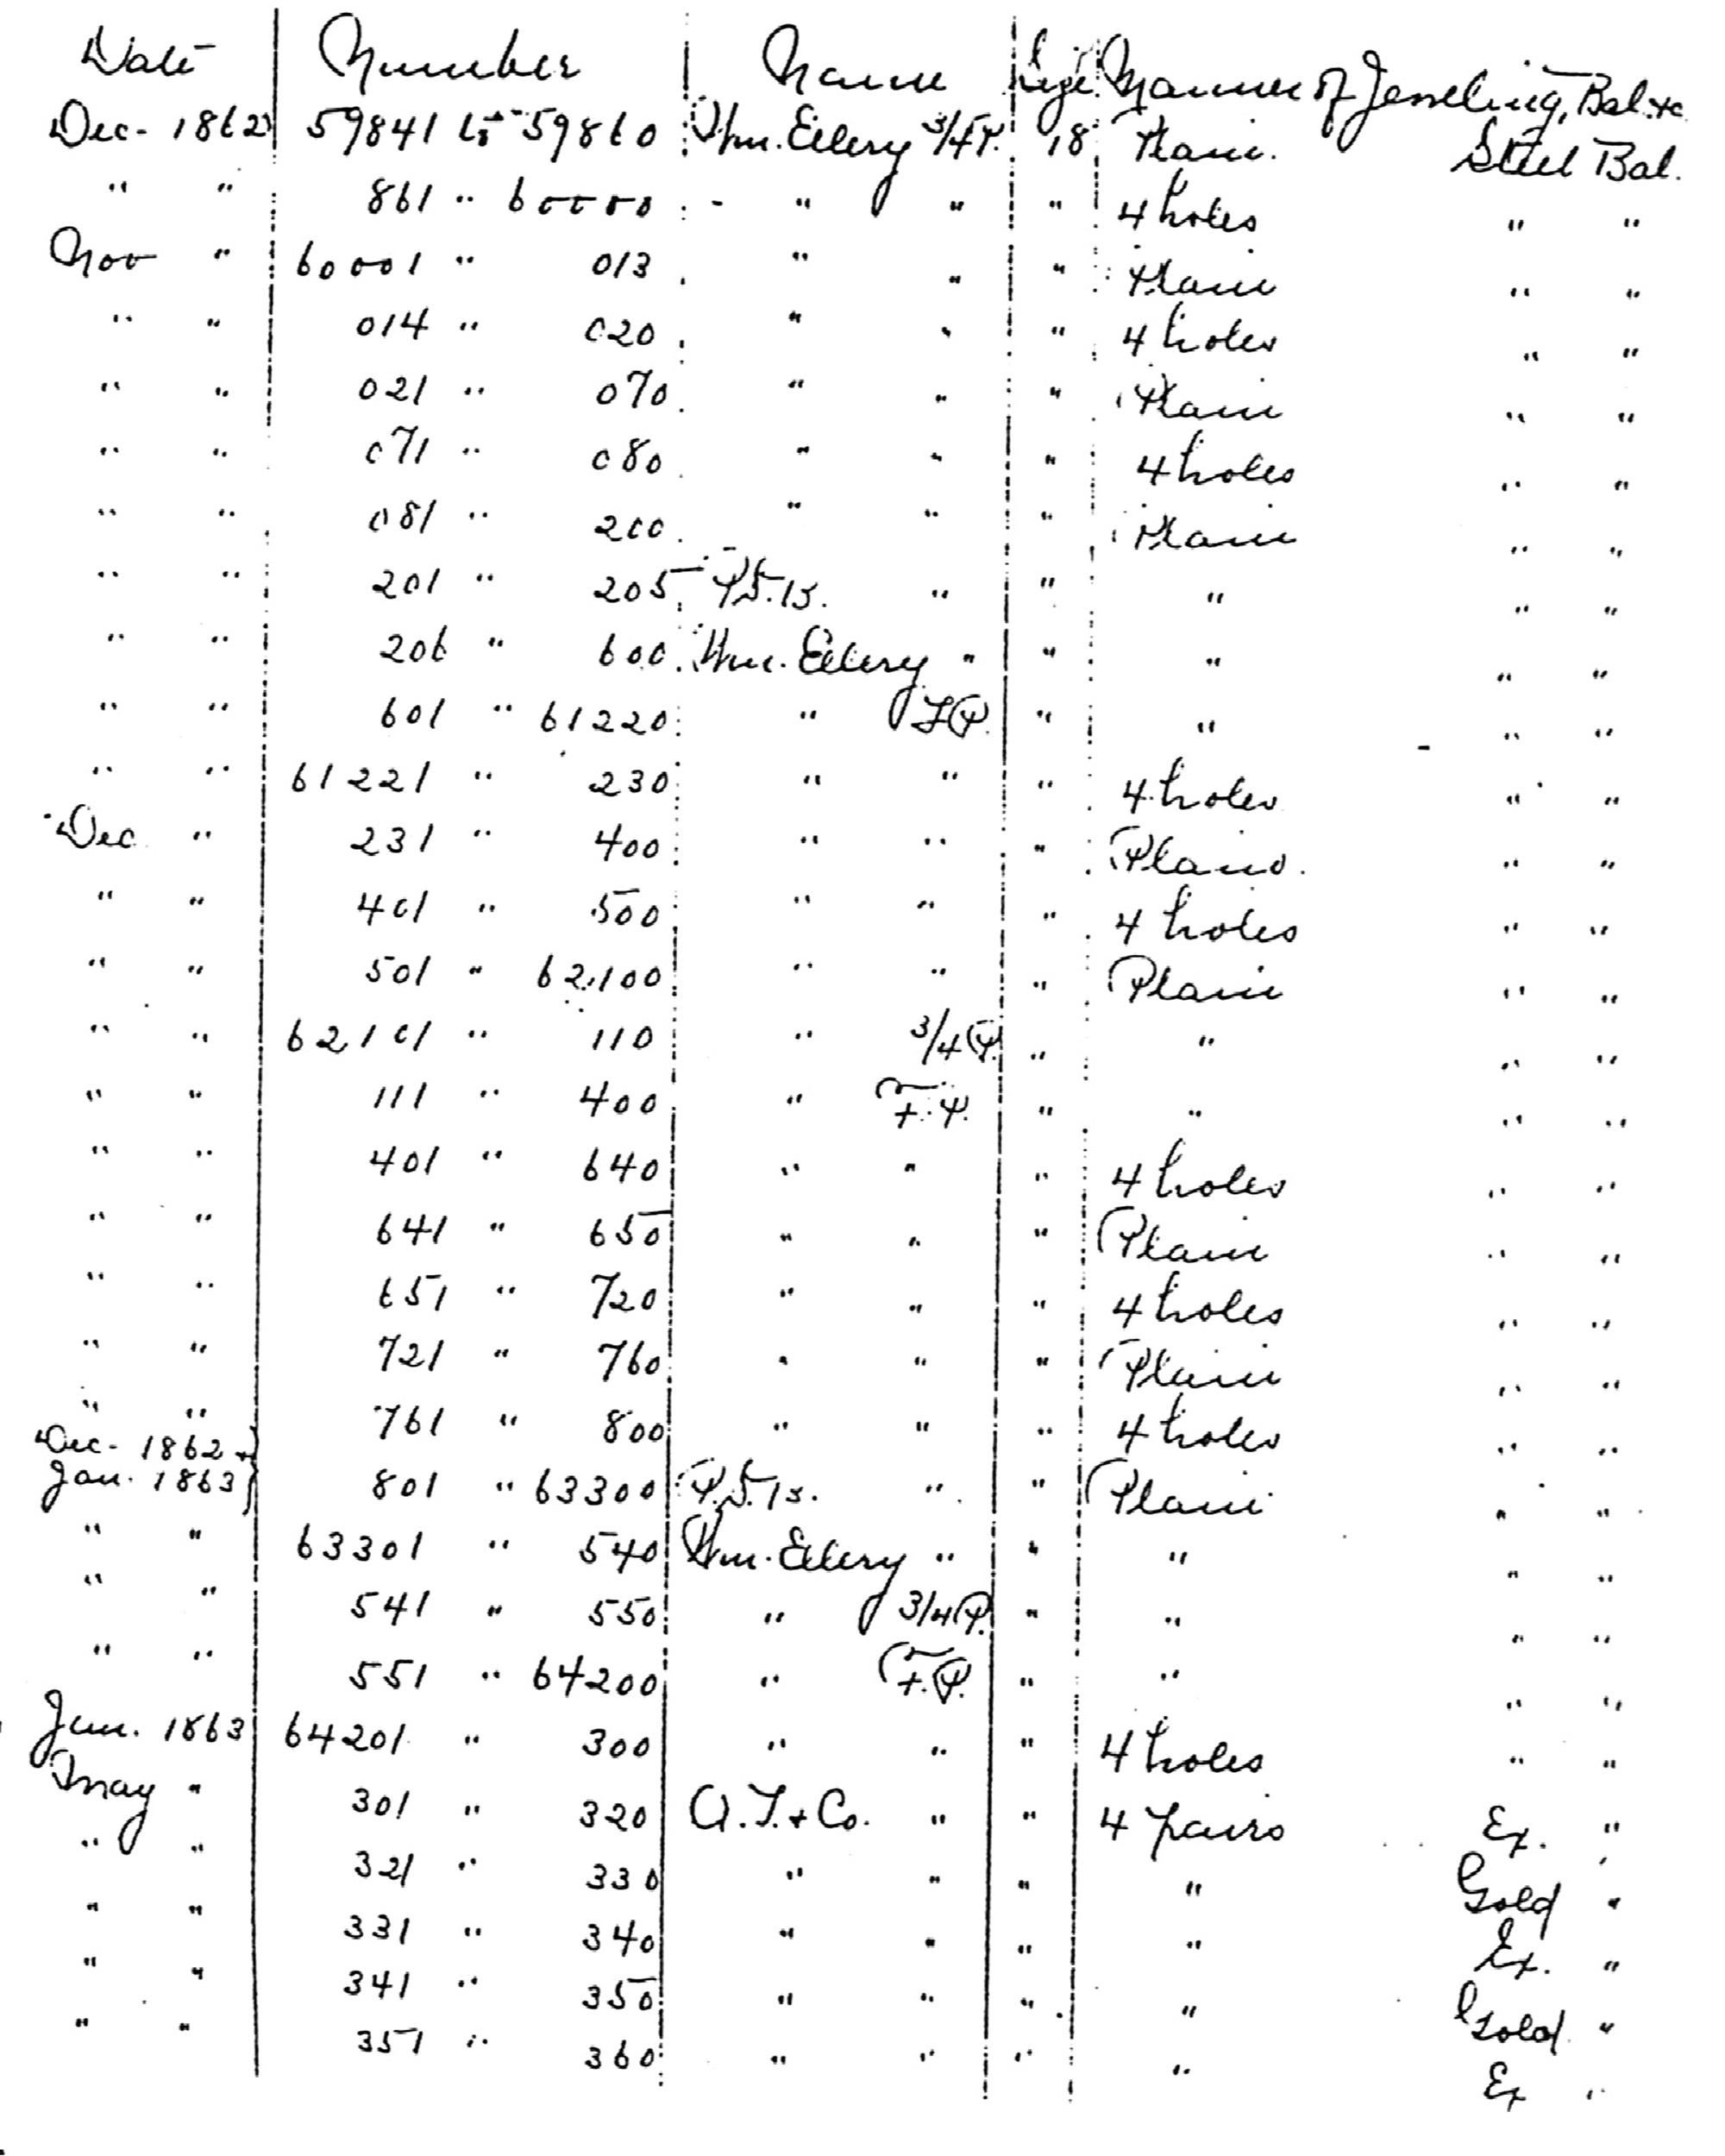 Date Number Name Size Manner of Jeweling, Bal. &c
Dec. 1862 59841 to 59860 Wm. Ellery 3/4 P. 18 Plain. Steel Bal.
" " 861 " 60000 - " " " 4 holes " "
Nov " 60001 " 013 " " " Plain " "
" " 014 " 020 " " " 4 holes " "
" " 021 " 070 " " " Plain " "
" " 071 " 080 " " " 4 holes " "
" " 081 " 200 " " " Plain " "
" " 201 " 205 P.S.B. " " " " "
" " 206 " 600 Wm. Ellery " " " " "
" " 601 " 61220 " F.P. " " " "
" " 61221 " 230 " " " 4 holes " "
Dec " 231 " 400 " " " Plain. " "
" " 401 " 500 " " " 4 holes " "
" " 501 " 62100 " " " Plain " "
" " 62101 " 110 " 3/4 P. " " " "
" " 111 " 400 " F.P. " " " "
" " 401 " 640 " " " 4 holes " "
" " 641 " 650 " " " Plain " "
" " 651 " 720 " " " 4 holes " "
" " 721 " 760 " " " Plain " "
" " 761 " 800 " " " 4 holes " "
Dec. 1862 +
Jan. 1863 } 801 " 63300 P.S.B. " " Plain " "
" " 63301 " 540 Wm. Ellery " " " " "
" " 541 " 550 " 3/4 P. " " " "
" " 551 " 64200 " F.P. " " " "
Jan. 1863 64201 " 300 " " " 4 holes " "
May " 301 " 320 A.T. & Co. " " 4 pairs Ex. "
" " 321 " 330 " " " " Gold "
" " 331 " 340 " " " " Ex. "
" " 341 " 350 " " " " Gold "
" " 351 " 360 " " " " Ex "